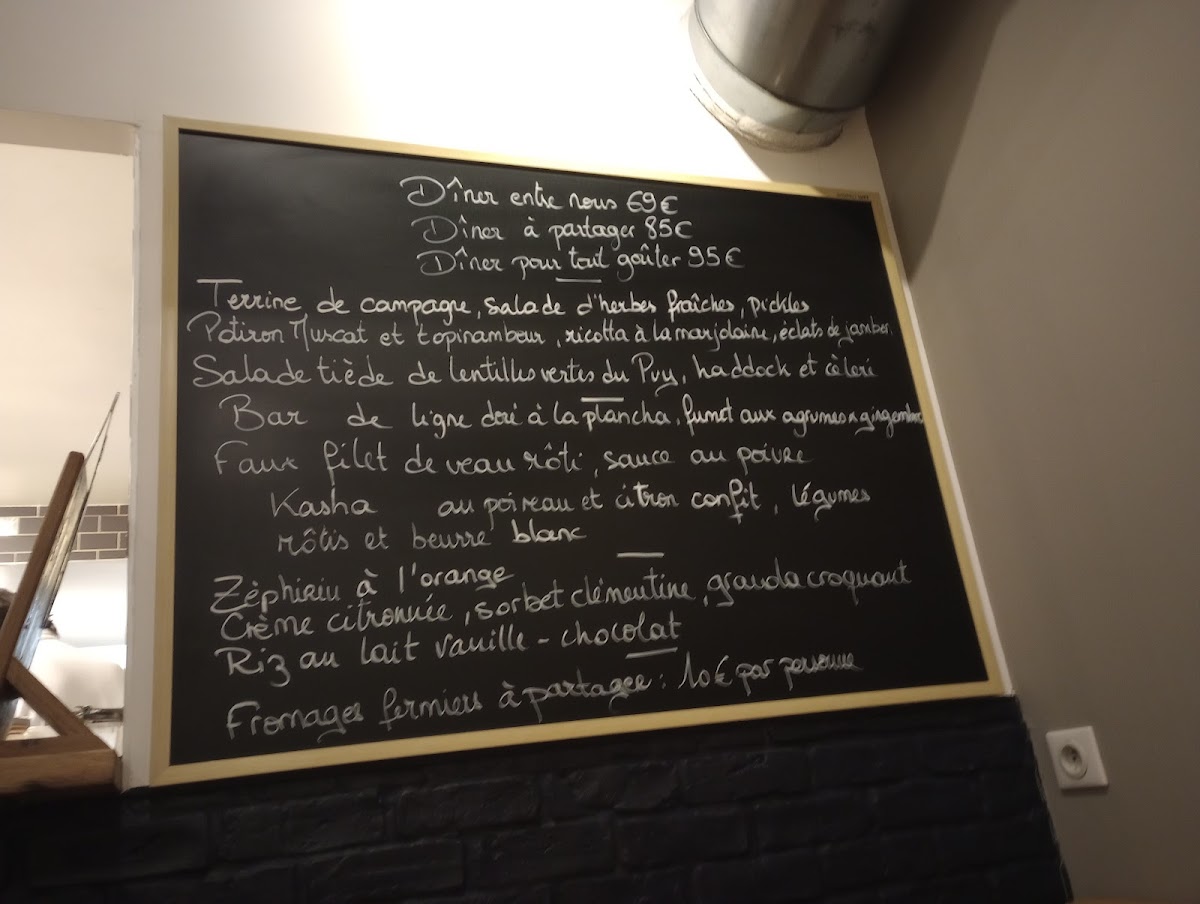 Dîner entre nous 69€
Dîner à partager 85€
Dîner pour tout goûter 95€
Terrine de campagne, salade d'herbes fraîches, pickles
Potiron Muscat et topinambour, ricotta à la marjolaine, éclats de jambon
Salade tiède de lentilles vertes du Puy, haddock et cèleri
Bar de ligne doré à la plancha, fumet aux agrumes & gingembre
Faux filet de veau rôti, sauce au poivre
Kasha au poireau et citron confit, légumes
rôtis et beurre blanc
Zéphirin à l'orange
Crème citronnée, sorbet clémentine, granola croquant
Riz au lait vanille - chocolat
Fromages fermiers à partager : 10€ par personne